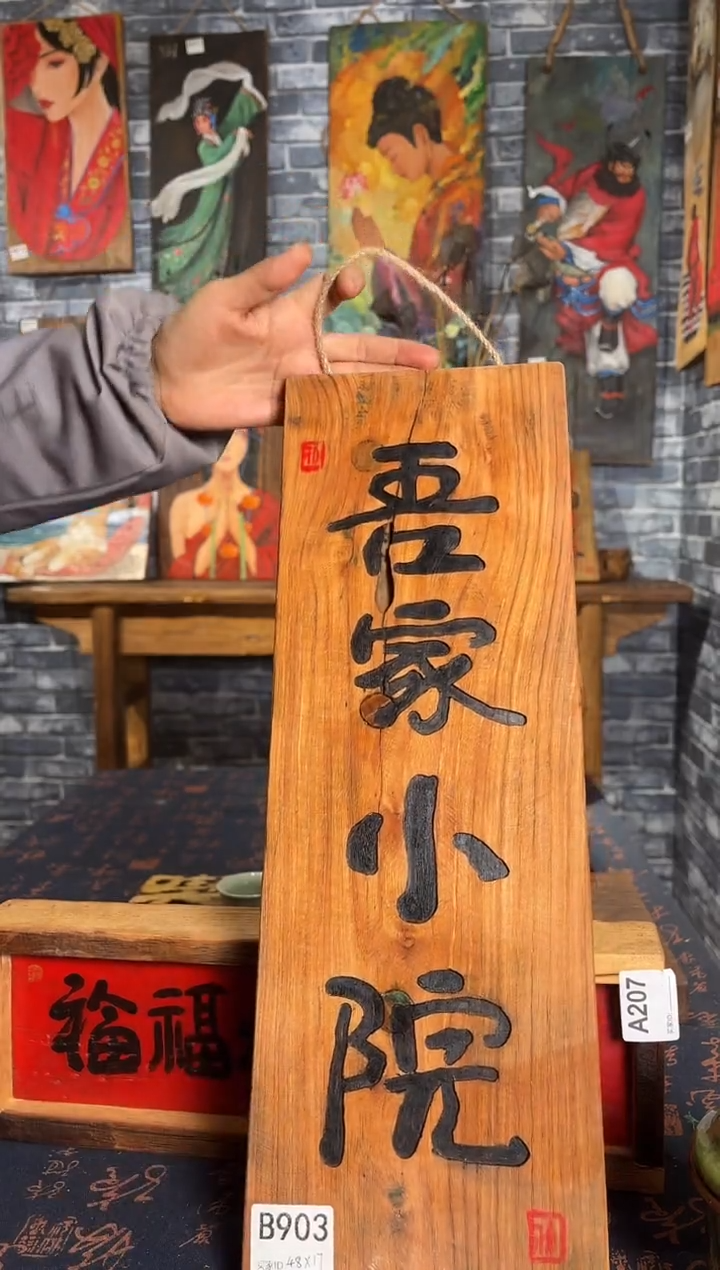 吾家小院
福福
A207
B903
48X17